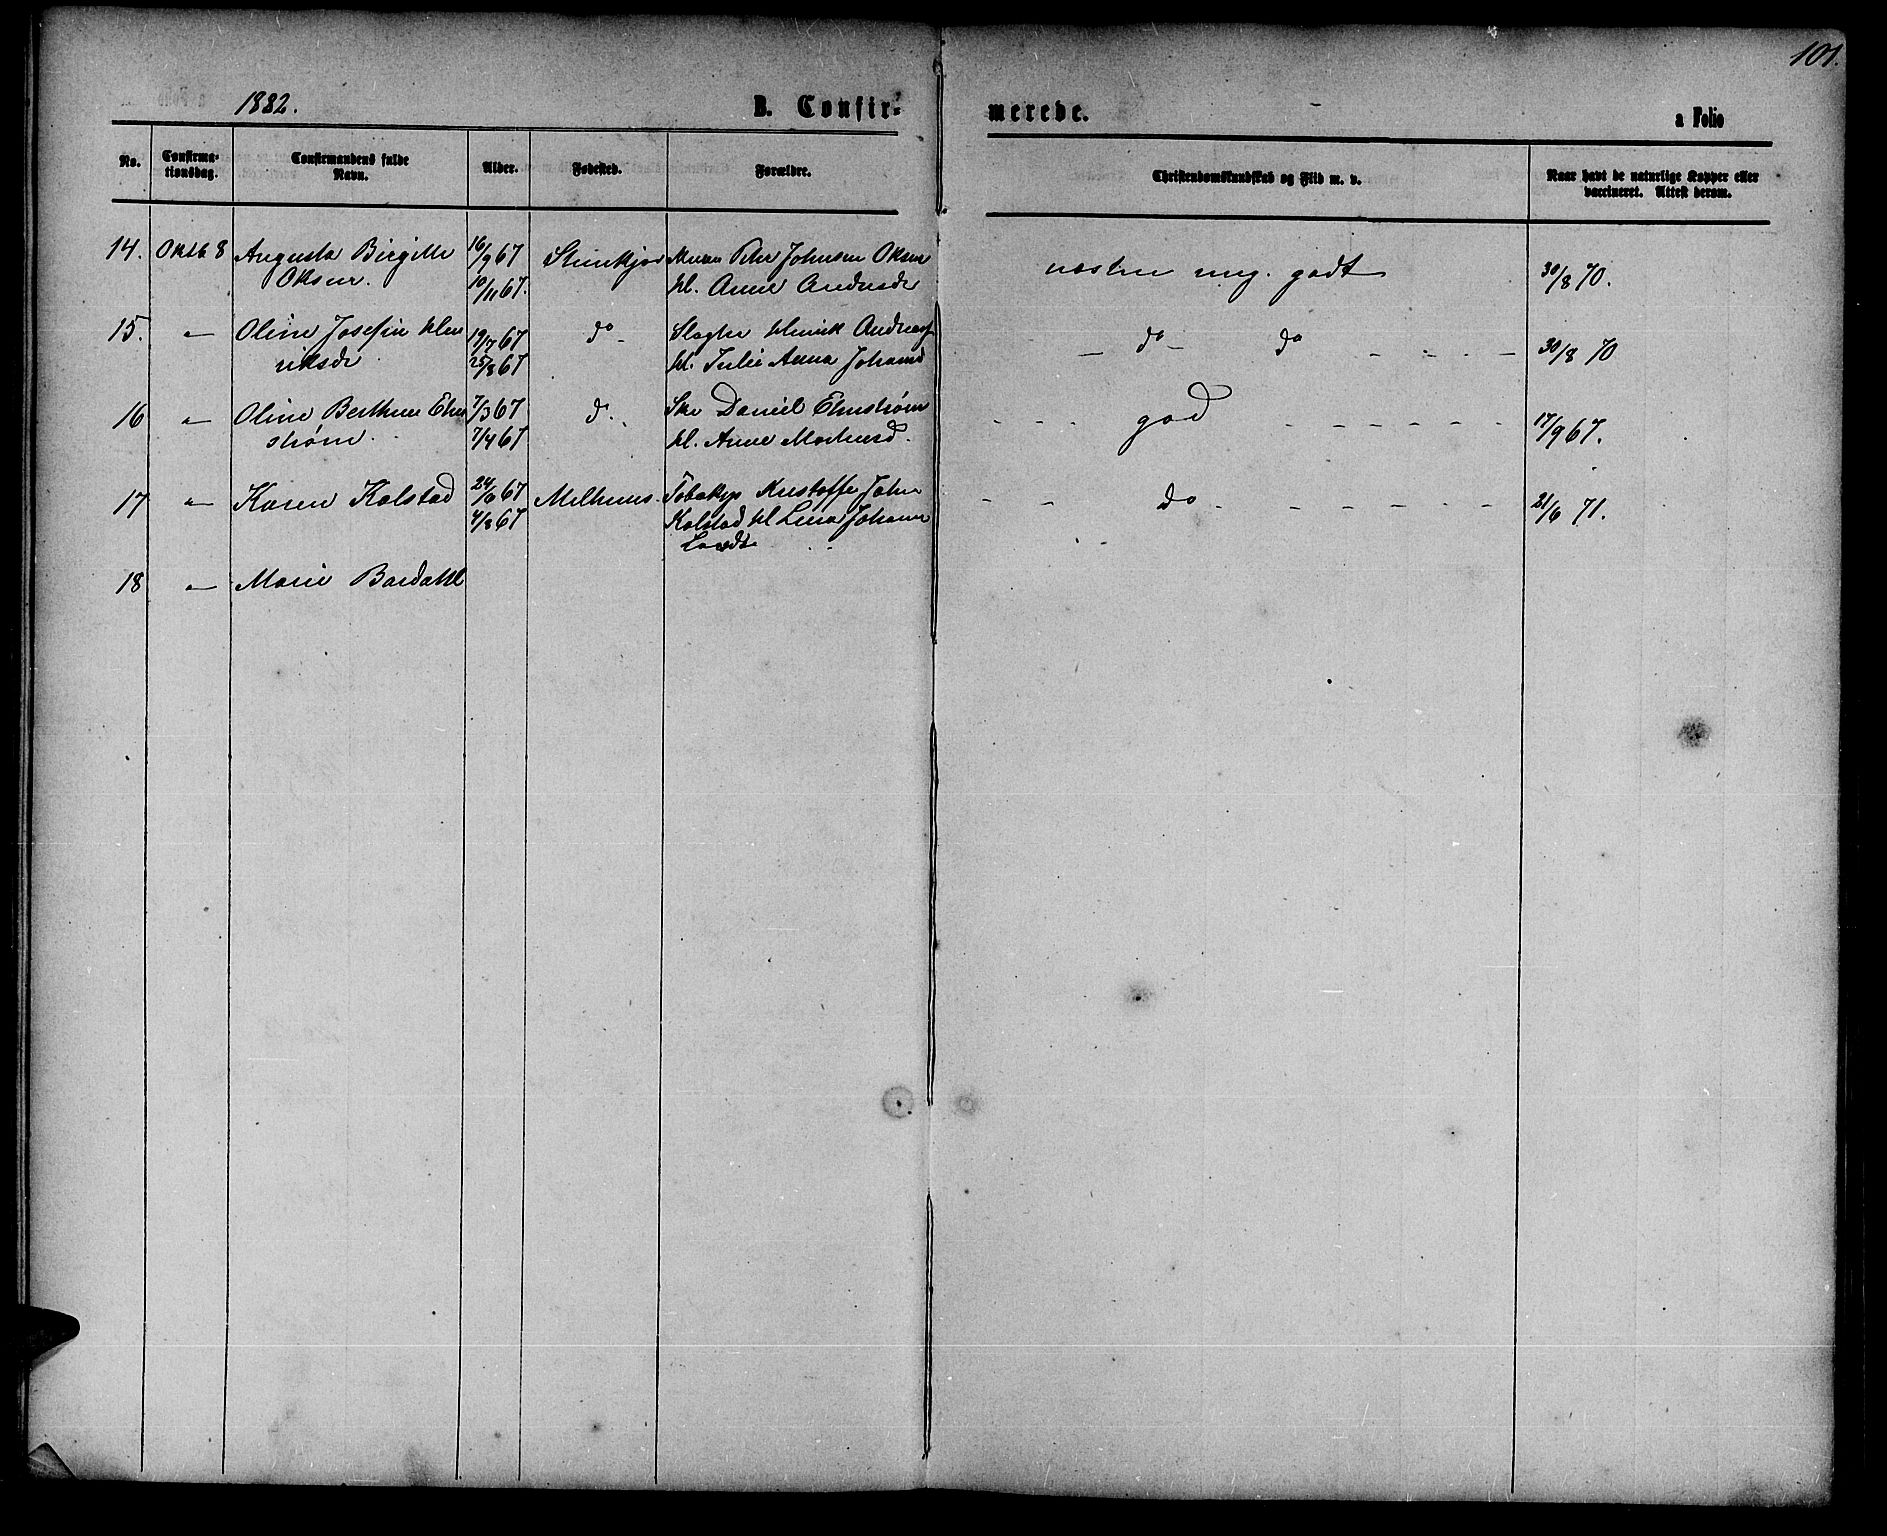 101.
1882.
B. Confir-
merede.
a Folio
No.
Confirma-
tionsdag.
Confirmandens fulde
Navn.
Alder.
Fødested.
Forældre.
Christendomskundskab og Flid m. v.
Naar havt de naturlige Kopper eller
vaccineret. Attest derom.
14. Oktb 8 Augusta Birgitte 16/9 67 Stenkjær Petter Johnsen Olsen næsten meg. godt 30/8 70.
Olsen. 10/11 67. hl. Anne Andersdr
15. — Oline Josefine Hen 19/7 67 do - Slagter Henrik Andreas - do - do - - - - 30/8 70
riksdr 25/8 67 hl. Julie Anna Johansd
16 — Oline Berthine Elm 7/3 67 d. Daniel Elmstrøm - - - god - - - - - - 17/9 67.
strøm. 7/4 67 hl. Anne Mortensd.
17 — Karen Kolstad 24/6 67 Melhuus. Kristoffer John - - do - - - - - - 21/6 71.
4/8 67 Kolstad hl Lina Johanne
18 — Marie Bardahl